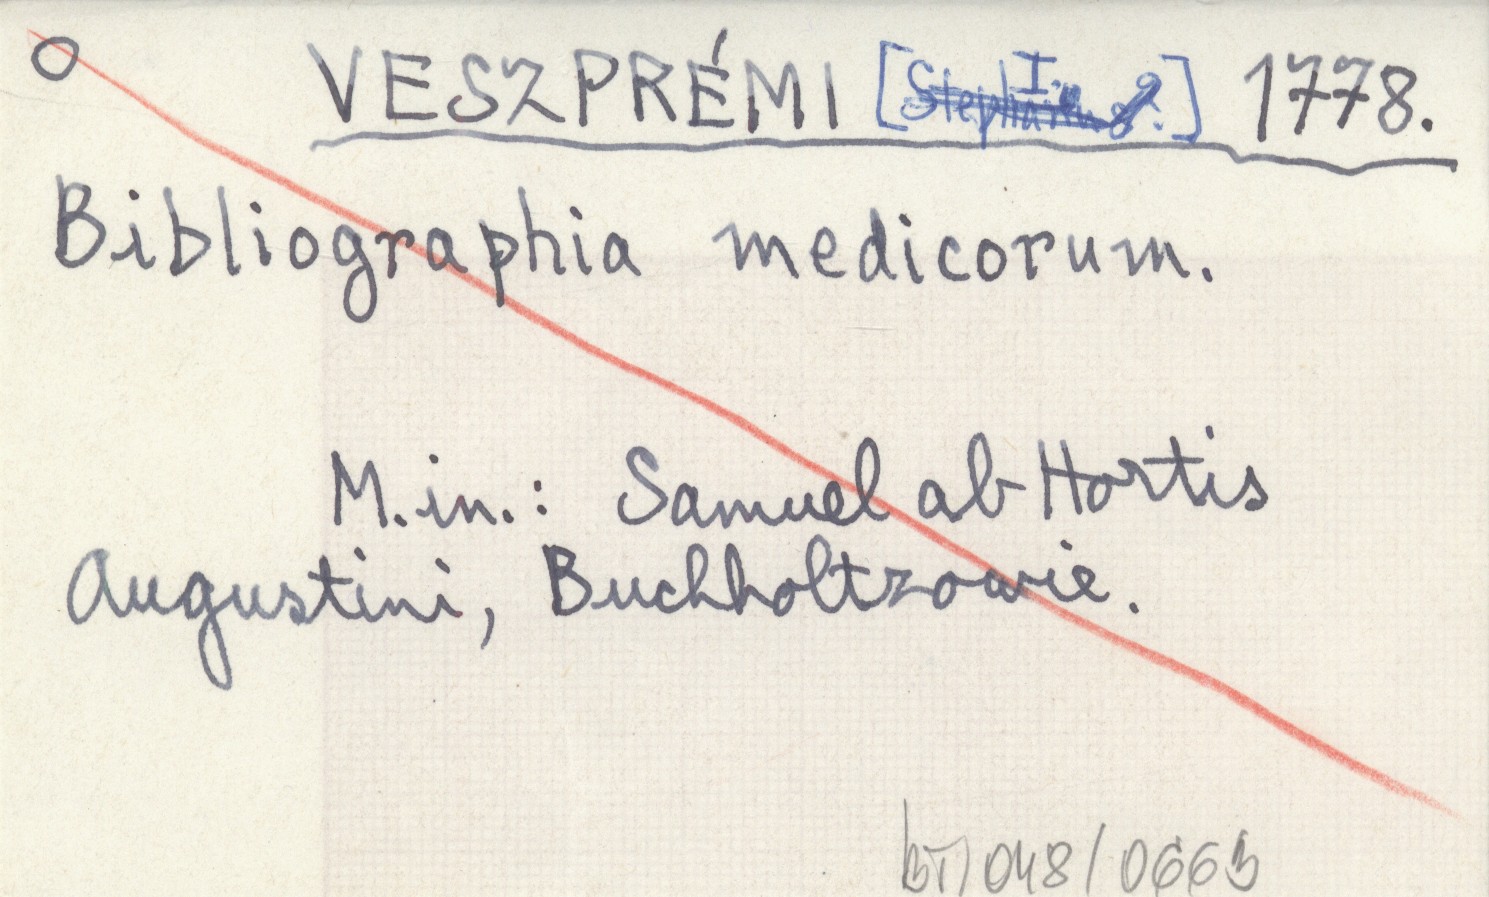 VESZPRÉMI [I.] 1778.
Bibliographia medicorum.
M.in.: Samuel ab Hortis
Augustini, Buchholtzowie.
BT/048/0663